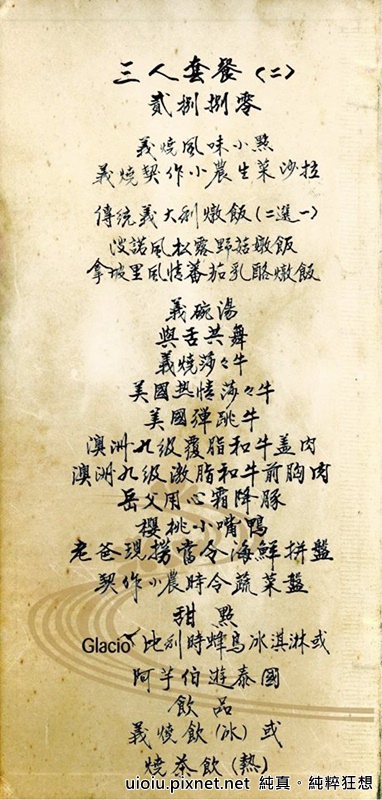 三人套餐(二)
貳捌捌零
義燒風味小點
義燒契作小農生菜沙拉
傳統義大利燉飯(二選一)
波諾風松露野菇燉飯
拿坡里風情蕃茄乳酪燉飯
義碗湯
與舌共舞
義燒莎々牛
美國熱情莎々牛
美國彈跳牛
澳洲九級覆脂和牛蓋肉
澳洲九級激脂和牛前胸肉
岳父用心霜降豚
櫻桃小嘴鴨
老爸現撈當令海鮮拼盤
契作小農時令蔬菜盤
甜點
Glacio比利時蜂鳥冰淇淋或
阿芋伯遊泰國
飲品
義燒飲(冰)或
燒茶飲(熱)
uioiu.pixnet.net 純真。純粹狂想